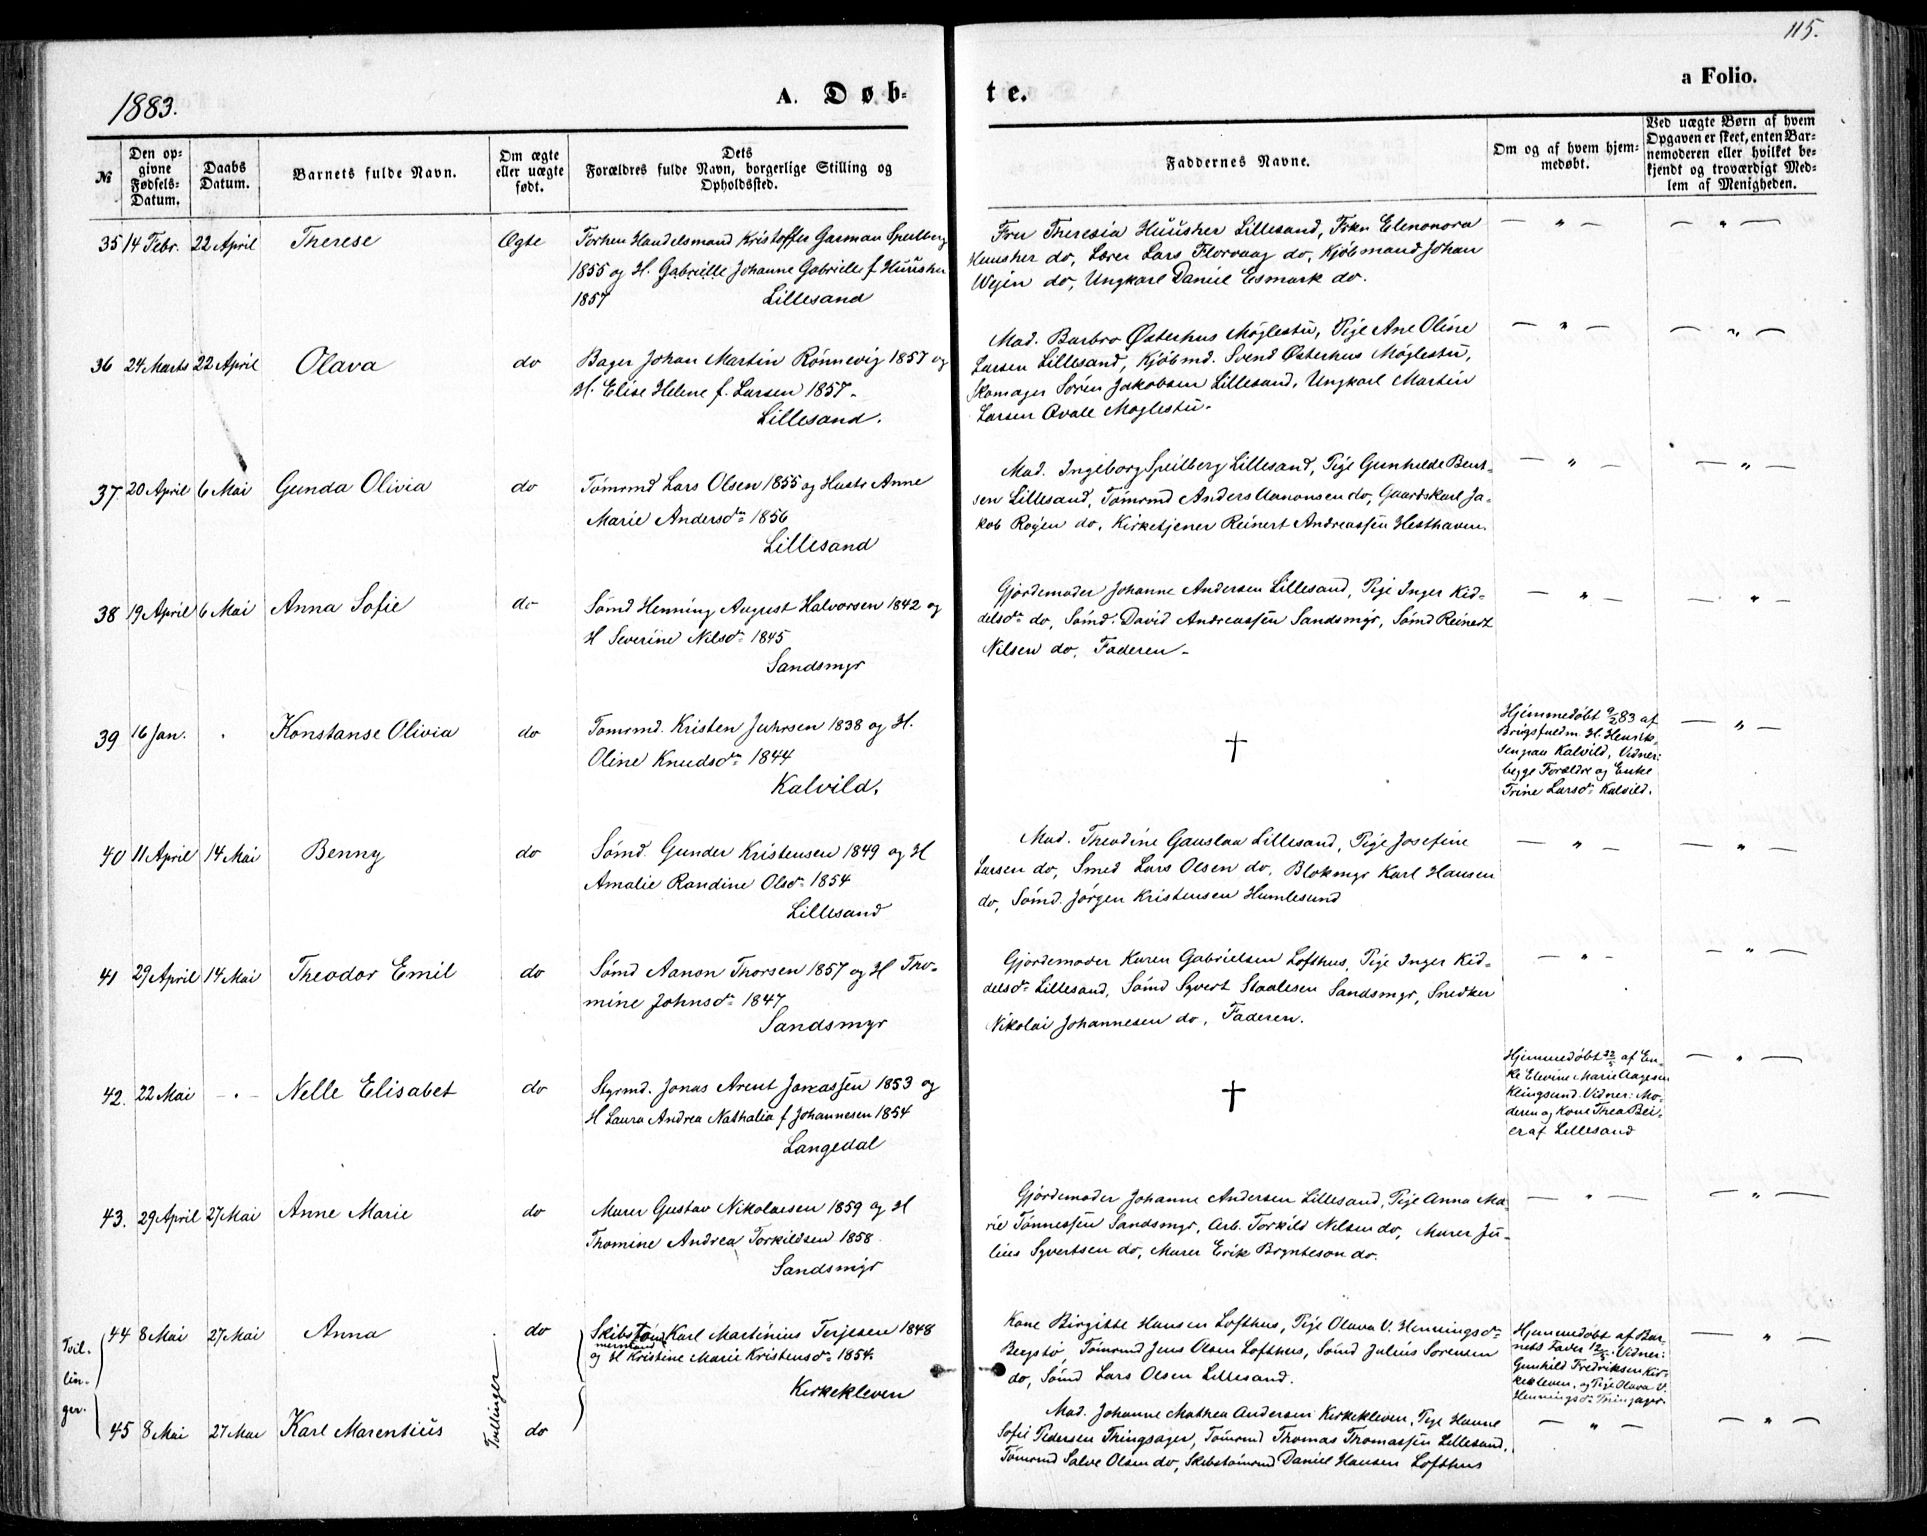 115.
1883.
A. Døb-
te.
a Folio.
№
Den op-
givne
Fødsels-
Datum.
Daabs
Datum.
Barnets fulde Navn.
Om ægte
eller uægte
født.
Dets
Forældres fulde Navn, borgerlige Stilling og
Opholdssted.
Faddernes Navne.
Om og af hvem hjem-
medøbt.
Ved uægte Børn af hvem
Opgaven er skeet, enten Bar-
nemoderen eller hvilket be-
kjendt og troværdigt Med-
lem af Menigheden.
35 14 Febr. 22 April Therese Ægte
Forhen Handelsmand Kristoffer Garman Speilberg
1855 og H. Gabrielle Johanne Gabrielle f. Huusher
1857 Lillesand
Fru Theresia Huusher Lillesand, Frkn Elenonora
Huusher do, Lærer Lars Florvaag do, Kjøbmand Johan
Wejen do, Ungkarl Daniel Esmark do.
— " — — " —
36 24 Marts 22 April Olava do
Bager Johan Martin Rønnevig 1857 og
H. Elise Helene f. Larsen 1857.
Lillesand.
Mad. Barbro Østerhus Møglestu, Pige Ane Oline
Larsen Lillesand, Kjøbmd. Svend Østerhus Møglestu,
Skomager Søren Jakobsen Lillesand, Ungkarl Martin
Larsen Møglestu.
— " — — " —
37 20 April 6 Mai Gunda Olivia do
Tømrmd Lars Olsen 1855 og Hustr Anne
Marie Andersdr 1856
Lillesand
Mad. Ingeborg Speilberg Lillesand, Pige Gunhilde Bent-
sen Lillesand, Tømrmd Anders Aanonsen do, Gaardskarl Ja-
kob Rogen do, Kirketjener Reinert Andreassen Hesthaven.
— " — — " —
38 19 April 6 Mai Anna Sofie do
Sømd Henning August Halvorsen 1842 og
H Severine Nilsdr 1845
Sandsmyr
Gjordemoder Johanne Andersen Lillesand, Pige Inger Kid-
delsdr do, Sømd. David Andreassen Sandsmyr, Sømd Reinert
Nilsen do, Faderen.
— " — — " —
39 16 Jan. . Konstanse Olivia do
Tømrmd. Kristen Juhrsen 1838 og H.
Oline Knudsdr 1844
Kalvild.
†
Hjemmedøbt 9/2 83 af
Brugsfuldm. H. Henrik-
sen paa Kalvild, Vidner:
begge Forældre og Enke
Trine Larsdr Kalvild.
— " —
40 11 April 14 Mai Benny do
Sømd. Gunder Kristensen 1849 og H
Amalie Randine Olsdr 1854
Lillesand
Mad. Theodine Gauslaa Lillesand, Pige Josefine
Larsen do, Smed Lars Olsen do, Blokmgr Karl Hansen
do, Sømd. Jørgen Kristensen Humlesund
— " — — " —
41 29 April 14 Mai Theodor Emil do
Sømd Aanon Thorsen 1857 og H Tho-
mine Johnsdr 1847
Sandsmyr
Gjordemoder Karen Gabrielsen Lofthus, Pige Inger Kid-
delsdr Lillesand, Sømd Syvert Staalesen Sandsmyr, Snedker
Nikolai Johannesen do, Faderen.
— " — — " —
42. 22 Mai — . — Nelle Elisabet do
Styrmd. Jonas Arent Jonassen 1853 og
H Laura Andrea Nathalia f Johannesen 1854
Langedal
†
Hjemmedøbt 22/5 af En-
ke Elevine Marie Aagesen
Klingsund. Vidner: Mo-
deren og Kone Thea Bei-
er af Lillesand
— " —
43. 29 April 27 Mai Anne Marie do
Murer Gustav Nikolaisen 1859 og H
Thomine Andrea Torkildsen 1858
Sandsmyr
Gjordemoder Johanne Andersen Lillesand, Pige Anna Ma-
rie Tønnessen Sandsmyr, Arb. Torkild Nilsen do, Murer Ju-
lius Syvertsen do, Murer Erik Brynteson do.
— " — — " —
Tvil-
lin-
ger.
44 8 Mai 27 Mai Anna do
Skibstøm
mermand Karl Martinius Terjesen 1848
og H Kristine Marie Kristensdr 1854.
Kirkekleven
Kone Birgitte Hansen Lofthus, Pige Olava V. Henningsdr
Bergstø, Tømrmd Jens Olsen Lofthus, Sømd Julius Sørensen
do, Sømd Lars Olsen Lillesand.
Hjemmedøbt af Bar-
nets Fader 12/5. Vidner:
Gunhild Fredriksen Kir-
kekleven, og Pige Olava V.
Henningsdr Tingsager.
— " —
45 8 Mai 27 Mai Karl Marentius Tvillinger do
Mad. Johanne Mathea Andersen Kirkekleven, Pige Hanne
Sofie Pedersen Thingsager, Tømrmd Thomas Thomassen Lillesand,
Tømrmd Salve Olsen do, Skibstømrmd Daniel Hansen Lofthus
— " — — " —